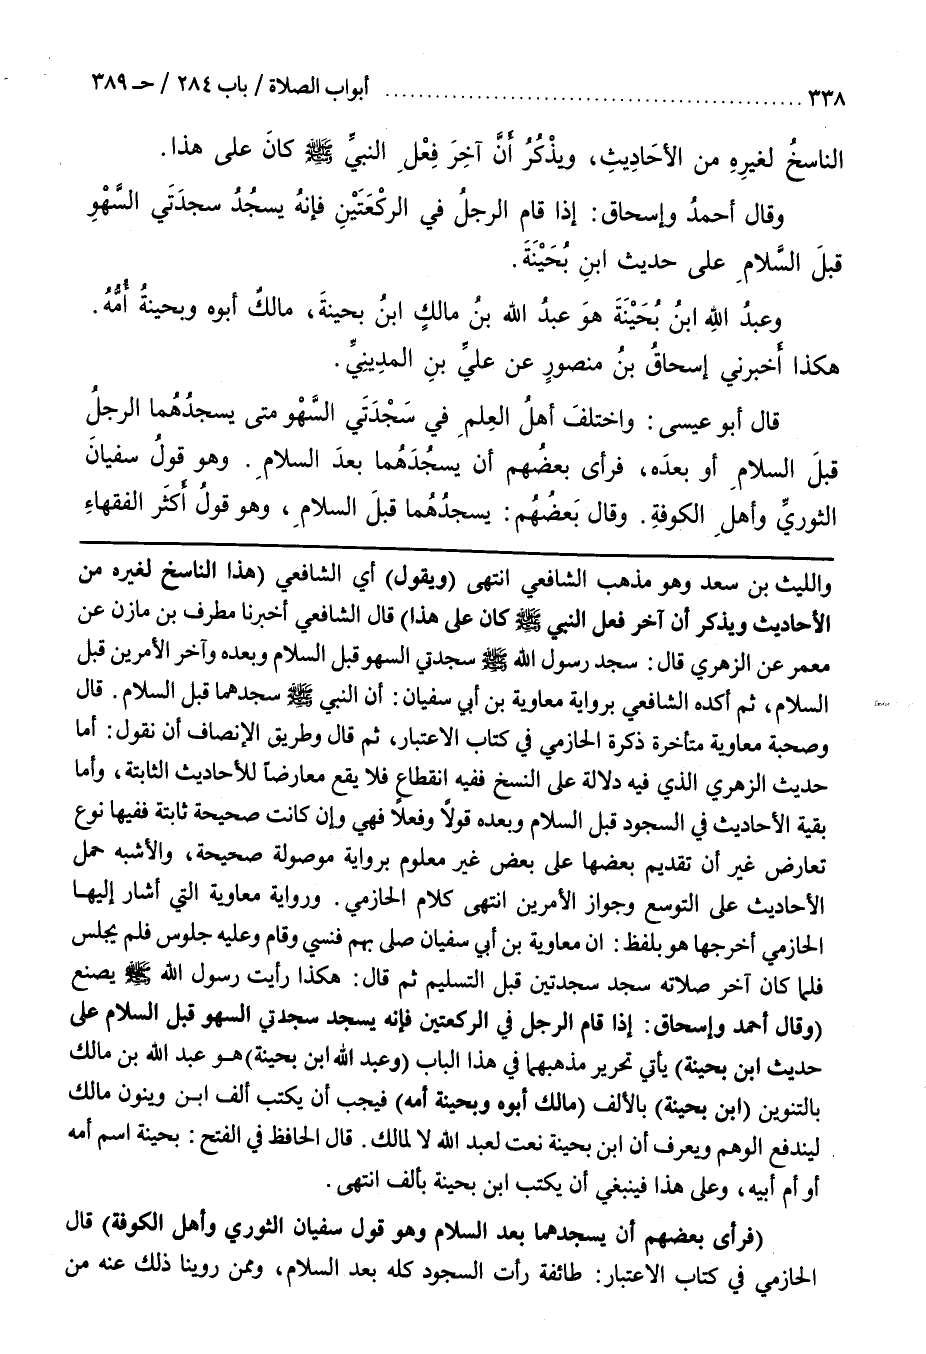 ٣٣٨ ........................ أبواب الصلاة / باب ٢٨٤ / حـ ٣٨٩
الناسخُ لغيرِهِ من الأحَادِيثِ، ويذْكُرُ أَنَّ آخِرَ فِعْلِ النبيِّ ﷺ كانَ على هذا.
وقال أحمدُ وإسحاق: إذا قام الرجلُ في الركْعَتَيْنِ فإنهُ يسجُدُ سجدَتَي السَّهْوِ
قبلَ السَّلامِ على حديث ابنِ بُحَيْنَةَ.
وعبدُ اللهِ ابنُ بُحَيْنَةَ هوَ عبدُ الله بنُ مالكٍ ابنُ بحينةَ، مالكٌ أبوه وبحينةُ أُمُّهُ.
هكذا أَخبرني إسحاقُ بنُ منصورٍ عن عليِّ بنِ المدِينِيِّ.
قال أبو عيسى: واختلفَ أهلُ العِلمِ في سَجْدَتَي السَّهْو متى يسجدُهُما الرجلُ
قبلَ السلامِ أو بعدَه، فرأى بعضُهم أن يسجُدَهُما بعدَ السلامِ. وهو قولُ سفيانَ
الثوريِّ وأهلِ الكوفةِ. وقال بَعضُهُم: يسجدُهُما قبلَ السلامِ، وهو قولُ أَكثَر الفقهاءِ
والليث بن سعد وهو مذهب الشافعي انتهى (ويقول) أي الشافعي (هذا الناسخ لغيره من
الأحاديث ويذكر أن آخر فعل النبي ﷺ كان على هذا) قال الشافعي أخبرنا مطرف بن مازن عن
معمر عن الزهري قال: سجد رسول الله ﷺ سجدتي السهو قبل السلام وبعده وآخر الأمرين قبل
السلام، ثم أكده الشافعي برواية معاوية بن أبي سفيان: أن النبي ﷺ سجدهما قبل السلام. قال
وصحبة معاوية متأخرة ذكرة الحازمي في كتاب الاعتبار، ثم قال وطريق الإنصاف أن نقول: أما
حديث الزهري الذي فيه دلالة على النسخ ففيه انقطاع فلا يقع معارضاً للأحاديث الثابتة، وأما
بقية الأحاديث في السجود قبل السلام وبعده قولاً وفعلاً فهي وإن كانت صحيحة ثابتة ففيها نوع
تعارض غير أن تقديم بعضها على بعض غير معلوم برواية موصولة صحيحة، والأشبه حمل
الأحاديث على التوسع وجواز الأمرين انتهى كلام الحازمي. ورواية معاوية التي أشار إليها
الحازمي أخرجها هو بلفظ: ان معاوية بن أبي سفيان صلى بهم فنسي وقام وعليه جلوس فلم يجلس
فلما كان آخر صلاته سجد سجدتين قبل التسليم ثم قال: هكذا رأيت رسول الله ﷺ يصنع
(وقال أحمد وإسحاق: إذا قام الرجل في الركعتين فإنه يسجد سجدتي السهو قبل السلام على
حديث ابن بحينة) يأتي تحرير مذهبهما في هذا الباب (وعبد الله ابن بحينة) هـو عبد الله بن مالك
بالتنوين (ابن بحينة) بالألف (مالك أبوه وبحينة أمه) فيجب أن يكتب ألف ابـن وينون مالك
ليندفع الوهم ويعرف أن ابن بحينة نعت لعبد الله لا لمالك. قال الحافظ في الفتح: بحينة اسم أمه
أو أم أبيه، وعلى هذا فينبغي أن يكتب ابن بحينة بألف انتهى.
(فرأى بعضهم أن يسجدهما بعد السلام وهو قول سفيان الثوري وأهل الكوفة) قال
الحازمي في كتاب الاعتبار: طائفة رأت السجود كله بعد السلام، وممن روينا ذلك عنه من